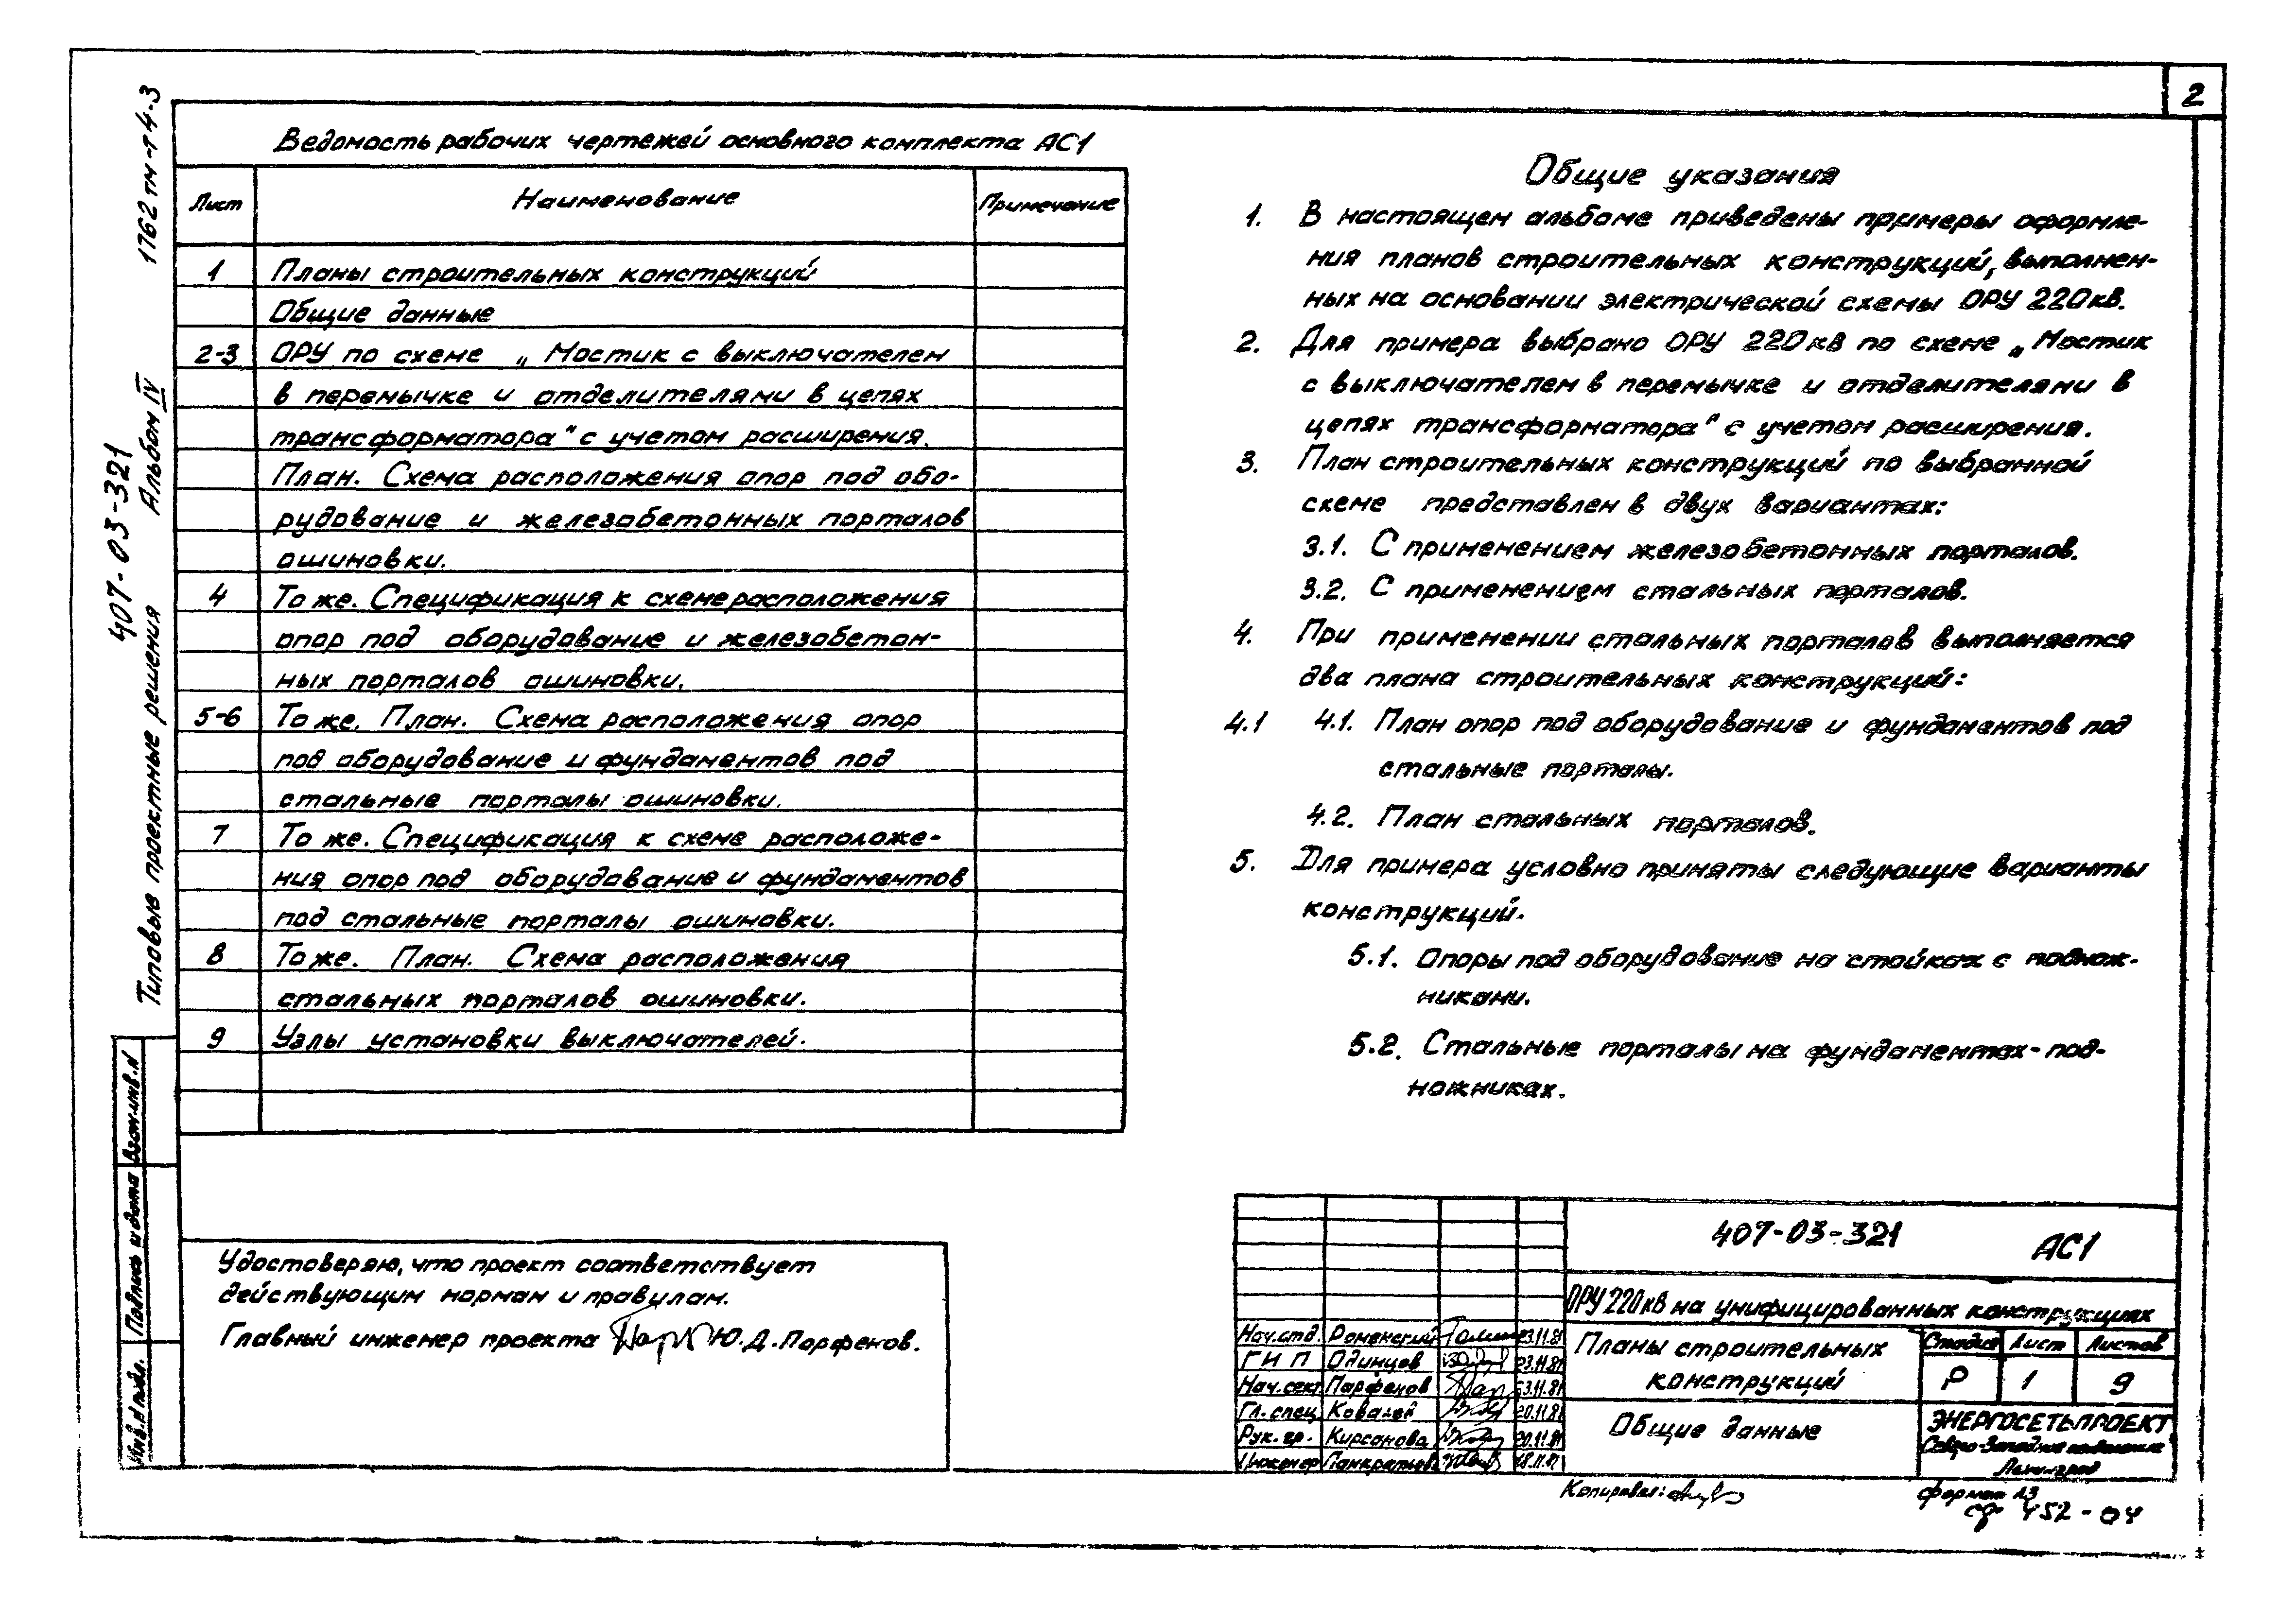 2
1762тм-т4-3
407-03-321
Типовые проектные решения Альбом IV
Ведомость рабочих чертежей основного комплекта АС1
Лист Наименование Примечание
1 Планы строительных конструкций
Общие данные
2-3 ОРУ по схеме „Мостик с выключателем
в перемычке и отделителями в цепях
трансформатора" с учетом расширения.
План. Схема расположения опор под обо-
рудование и железобетонных порталов
ошиновки.
4 То же. Спецификация к схеме расположения
опор под оборудование и железобетон-
ных порталов ошиновки.
5-6 То же. План. Схема расположения опор
под оборудование и фундаментов под
стальные порталы ошиновки.
7 То же. Спецификация к схеме расположе-
ния опор под оборудование и фундаментов
под стальные порталы ошиновки.
8 То же. План. Схема расположения
стальных порталов ошиновки.
9 Узлы установки выключателей.
Общие указания
1. В настоящем альбоме приведены примеры оформле-
ния планов строительных конструкций, выполнен-
ных на основании электрической схемы ОРУ 220кВ.
2. Для примера выбрано ОРУ 220кВ по схеме „Мостик
с выключателем в перемычке и отделителями в
цепях трансформатора" с учетом расширения.
3. План строительных конструкций по выбранной
схеме представлен в двух вариантах:
3.1. С применением железобетонных порталов.
3.2. С применением стальных порталов.
4. При применении стальных порталов выполняется
два плана строительных конструкций:
4.1 4.1. План опор под оборудование и фундаментов под
стальные порталы.
4.2. План стальных порталов.
5. Для примера условно приняты следующие варианты
конструкций.
5.1. Опоры под оборудование на стойках с поднож-
никами.
5.2. Стальные порталы на фундаментах-под-
ножниках.
Взам.инв.N
Подпись и дата
Инв.N подл.
Удостоверяю, что проект соответствует
действующим нормам и правилам.
Главный инженер проекта Ю.Д.Парфенов.
407-03-321 АС1
ОРУ 220кВ на унифицированных конструкциях
Нач.отд. Роменский 23.11.81
ГИП Одинцов 23.11.81
Нач.сект. Парфенов 23.11.81
Гл.спец. Ковалев 20.11.81
Рук.гр. Кирсанова 20.11.81
Инженер Панкратьев 18.11.81
Планы строительных
конструкций
Стадия Лист Листов
Р 1 9
Общие данные
ЭНЕРГОСЕТЬПРОЕКТ
Северо-Западное отделение
Ленинград
Копировал:
Формат А3
сф 452-04